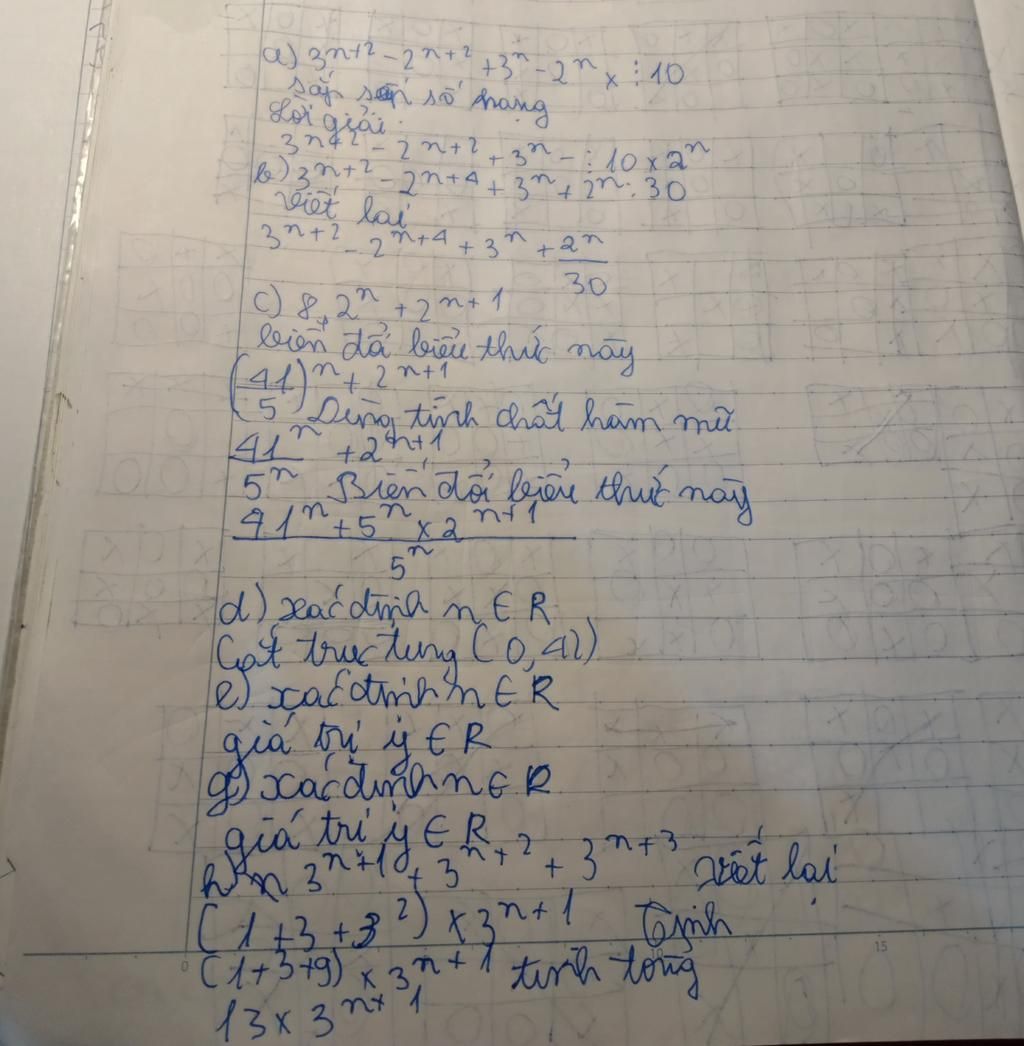 a) 3ⁿ⁺² - 2ⁿ⁺² + 3ⁿ - 2ⁿ x ⋮ 10
sắp số hạng
Lời giải
3ⁿ⁺² - 2ⁿ⁺² + 3ⁿ - ⋮ 10 x 2ⁿ
b) 3ⁿ⁺² - 2ⁿ⁺⁴ + 3ⁿ + 2ⁿ : 30
viết lại
3ⁿ⁺² - 2ⁿ⁺⁴ + 3ⁿ + 2ⁿ
30
c) 8, 2ⁿ + 2ⁿ⁺¹
biến đổi biểu thức này
(41)ⁿ + 2ⁿ⁺¹
5 Dùng tính chất hàm mũ
41ⁿ + 2ⁿ⁺¹
5ⁿ Biến đổi biểu thức này
41ⁿ + 5ⁿ x 2ⁿ⁺¹
5ⁿ
d) xác định n ∈ R
Cắt trục tung (0, 42)
e) xác định n ∈ R
giá trị y ∈ R
g) xác định n ∈ R
giá trị y ∈ R
h) 3ⁿ⁺¹ + 3ⁿ⁺² + 3ⁿ⁺³ viết lại
(1 + 3 + 3²) x 3ⁿ⁺¹ Tính
(1 + 3 + 9) x 3ⁿ⁺¹ tính tổng
13 x 3ⁿ⁺¹
0 15